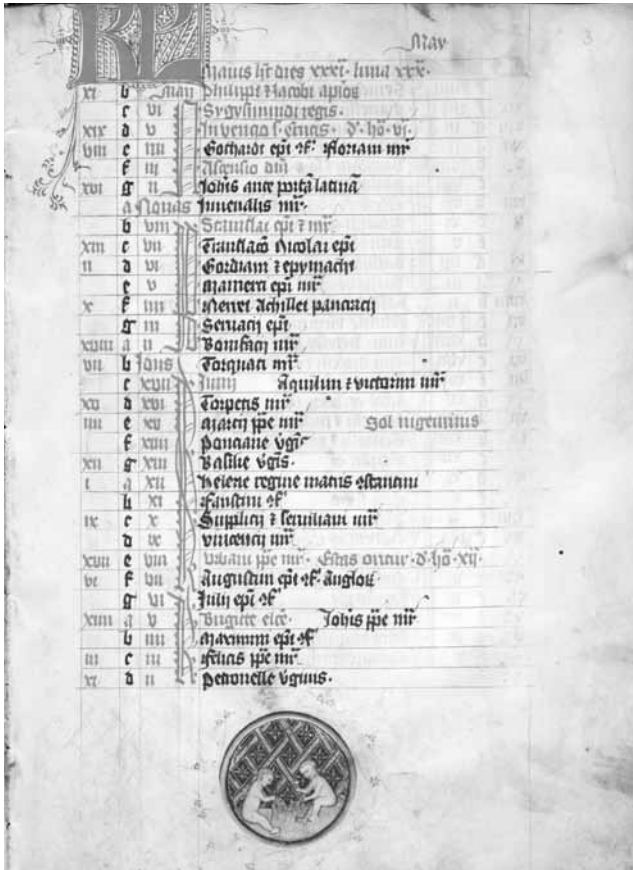 May 3
KL Maius ht dies xxxi. luna xxx.
xi b Maii Philippi et Iacobi aplos
c vi Sygysmundi regis.
xix d v Inventio s. crucis. d. ho. vi.
viii e iiii Gothardi epi et cf. Floriani mr
f iii Ascensio dni
xvi g ii Iohis ante portam latinam
a Nonas Iuuenalis mr.
b viii Stanislai epi et mr.
xiii c vii Translaco Nicolai epi
ii d vi Gordiani et epymachi
e v Mamerti epi mr
x f iiii Nerei Achillei pancracii
g iii Seruacii epi
xviii a ii Bonifacii mr
vii b Idus Torquati mr
c xvii Iunii Aquilini et victorini mr
xv d xvi Torpetis mr
iiii e xv Marci ppe mr Sol in geminis
f xiiii Potenciane vgis
xii g xiii Basilie vgis.
i a xii Helene regine matris Constantini
b xi Faustini cf
ix c x Supplicii et seruiliani mr
d ix vincencii mr
xvii e viii Vrbani ppe mr. Estas oritur. d. ho. xii.
vi f vii Augustini epi cf. Anglorum
g vi Iulii epi cf
xiiii a v Iohis ppe mr
b iiii Maximini epi cf
iii c iii Felicis ppe mr
xi d ii Petronelle vginis.